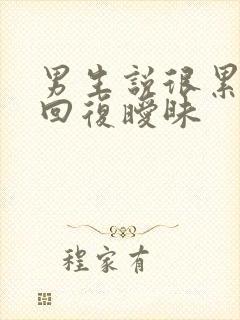 男生說很累
回復曖昧
程家有